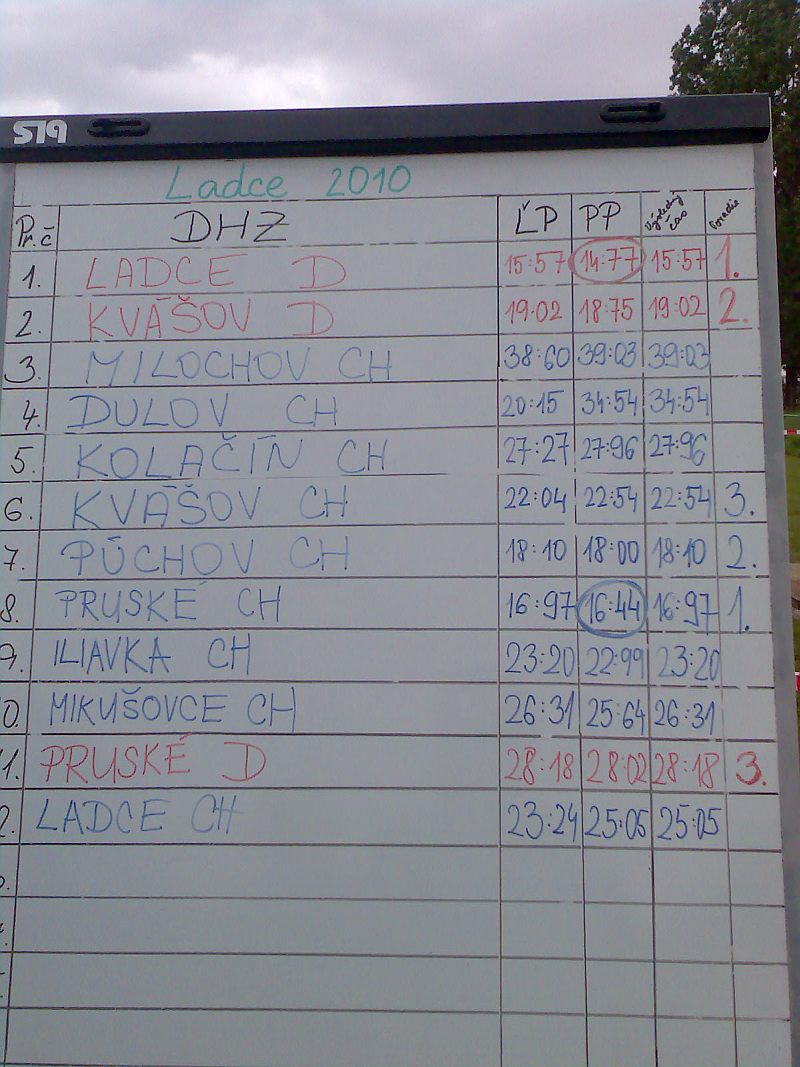 Ladce 2010
Pr.č DHZ ĽP PP Výsledný čas Poradie
1. LADCE D 15:57 14:77 15:57 1.
2. KVÁŠOV D 19:02 18:75 19:02 2.
3. MILOCHOV CH 38:60 39:03 39:03
4. DULOV CH 20:15 34:54 34:54
5. KOLAČÍN CH 27:27 27:96 27:96
6. KVÁŠOV CH 22:04 22:54 22:54 3.
7. PÚCHOV CH 18:10 18:00 18:10 2.
8. PRUSKÉ CH 16:97 16:44 16:97 1.
9. ILIAVKA CH 23:20 22:99 23:20
0. MIKUŠOVCE CH 26:31 25:64 26:31
1. PRUSKÉ D 28:18 28:02 28:18 3.
2. LADCE CH 23:24 25:05 25:05